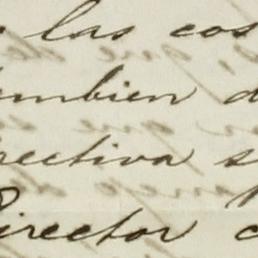 las cos
tambien d
rectiva s
Director c